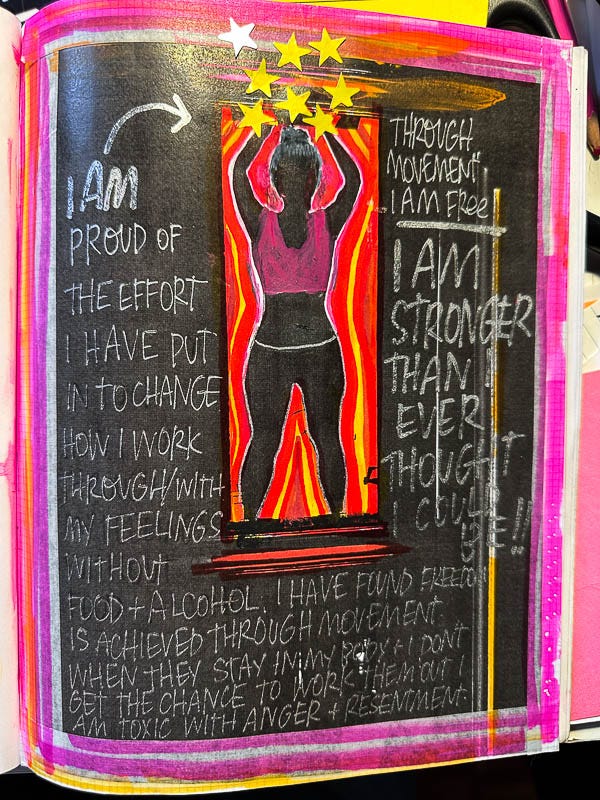 I AM
PROUD OF
THE EFFORT
I HAVE PUT
IN TO CHANGE
HOW I WORK
THROUGH/WITH
MY FEELINGS
WITHOUT
FOOD + ALCOHOL. I HAVE FOUND FREEDOM
IS ACHIEVED THROUGH MOVEMENT.
WHEN THEY STAY IN MY BODY + I DON'T
GET THE CHANCE TO WORK THEM OUT I
AM TOXIC WITH ANGER + RESENTMENT
THROUGH
MOVEMENT
I AM FREE
I AM
STRONGER
THAN I
EVER
THOUGHT
I COULD
BE!!